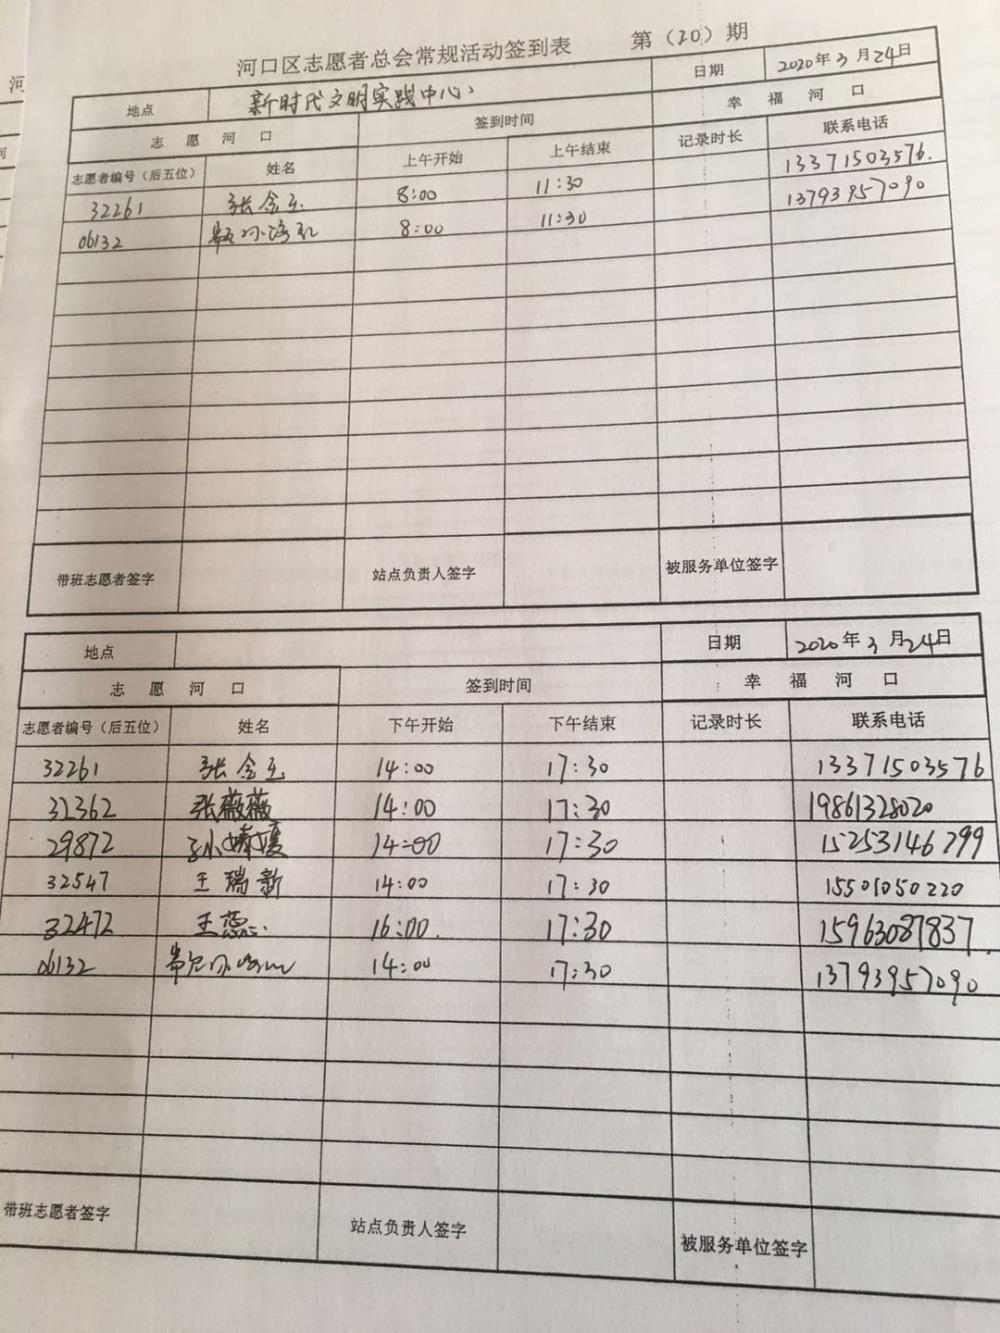 河口区志愿者总会常规活动签到表 第（20）期
地点 新时代文明实践中心 日期 2020年3月24日
志愿河口 签到时间 幸福河口
志愿者编号（后五位） 姓名 上午开始 上午结束 记录时长 联系电话
32261 张金玉 8:00 11:30 13371503576.
06132 8:00 11:30 13793957090
带班志愿者签字 站点负责人签字 被服务单位签字
地点 日期 2020年3月24日
志愿河口 签到时间 幸福河口
志愿者编号（后五位） 姓名 下午开始 下午结束 记录时长 联系电话
32261 张金玉 14:00 17:30 13371503576
31362 张薇薇 14:00 17:30 19861328020
29872 孙 14:00 17:30 15253146299
32547 王瑞新 14:00 17:30 15501050220
32472 王蕊 16:00. 17:30 15963087837.
06132 14:00 17:30 13793957090
带班志愿者签字 站点负责人签字 被服务单位签字